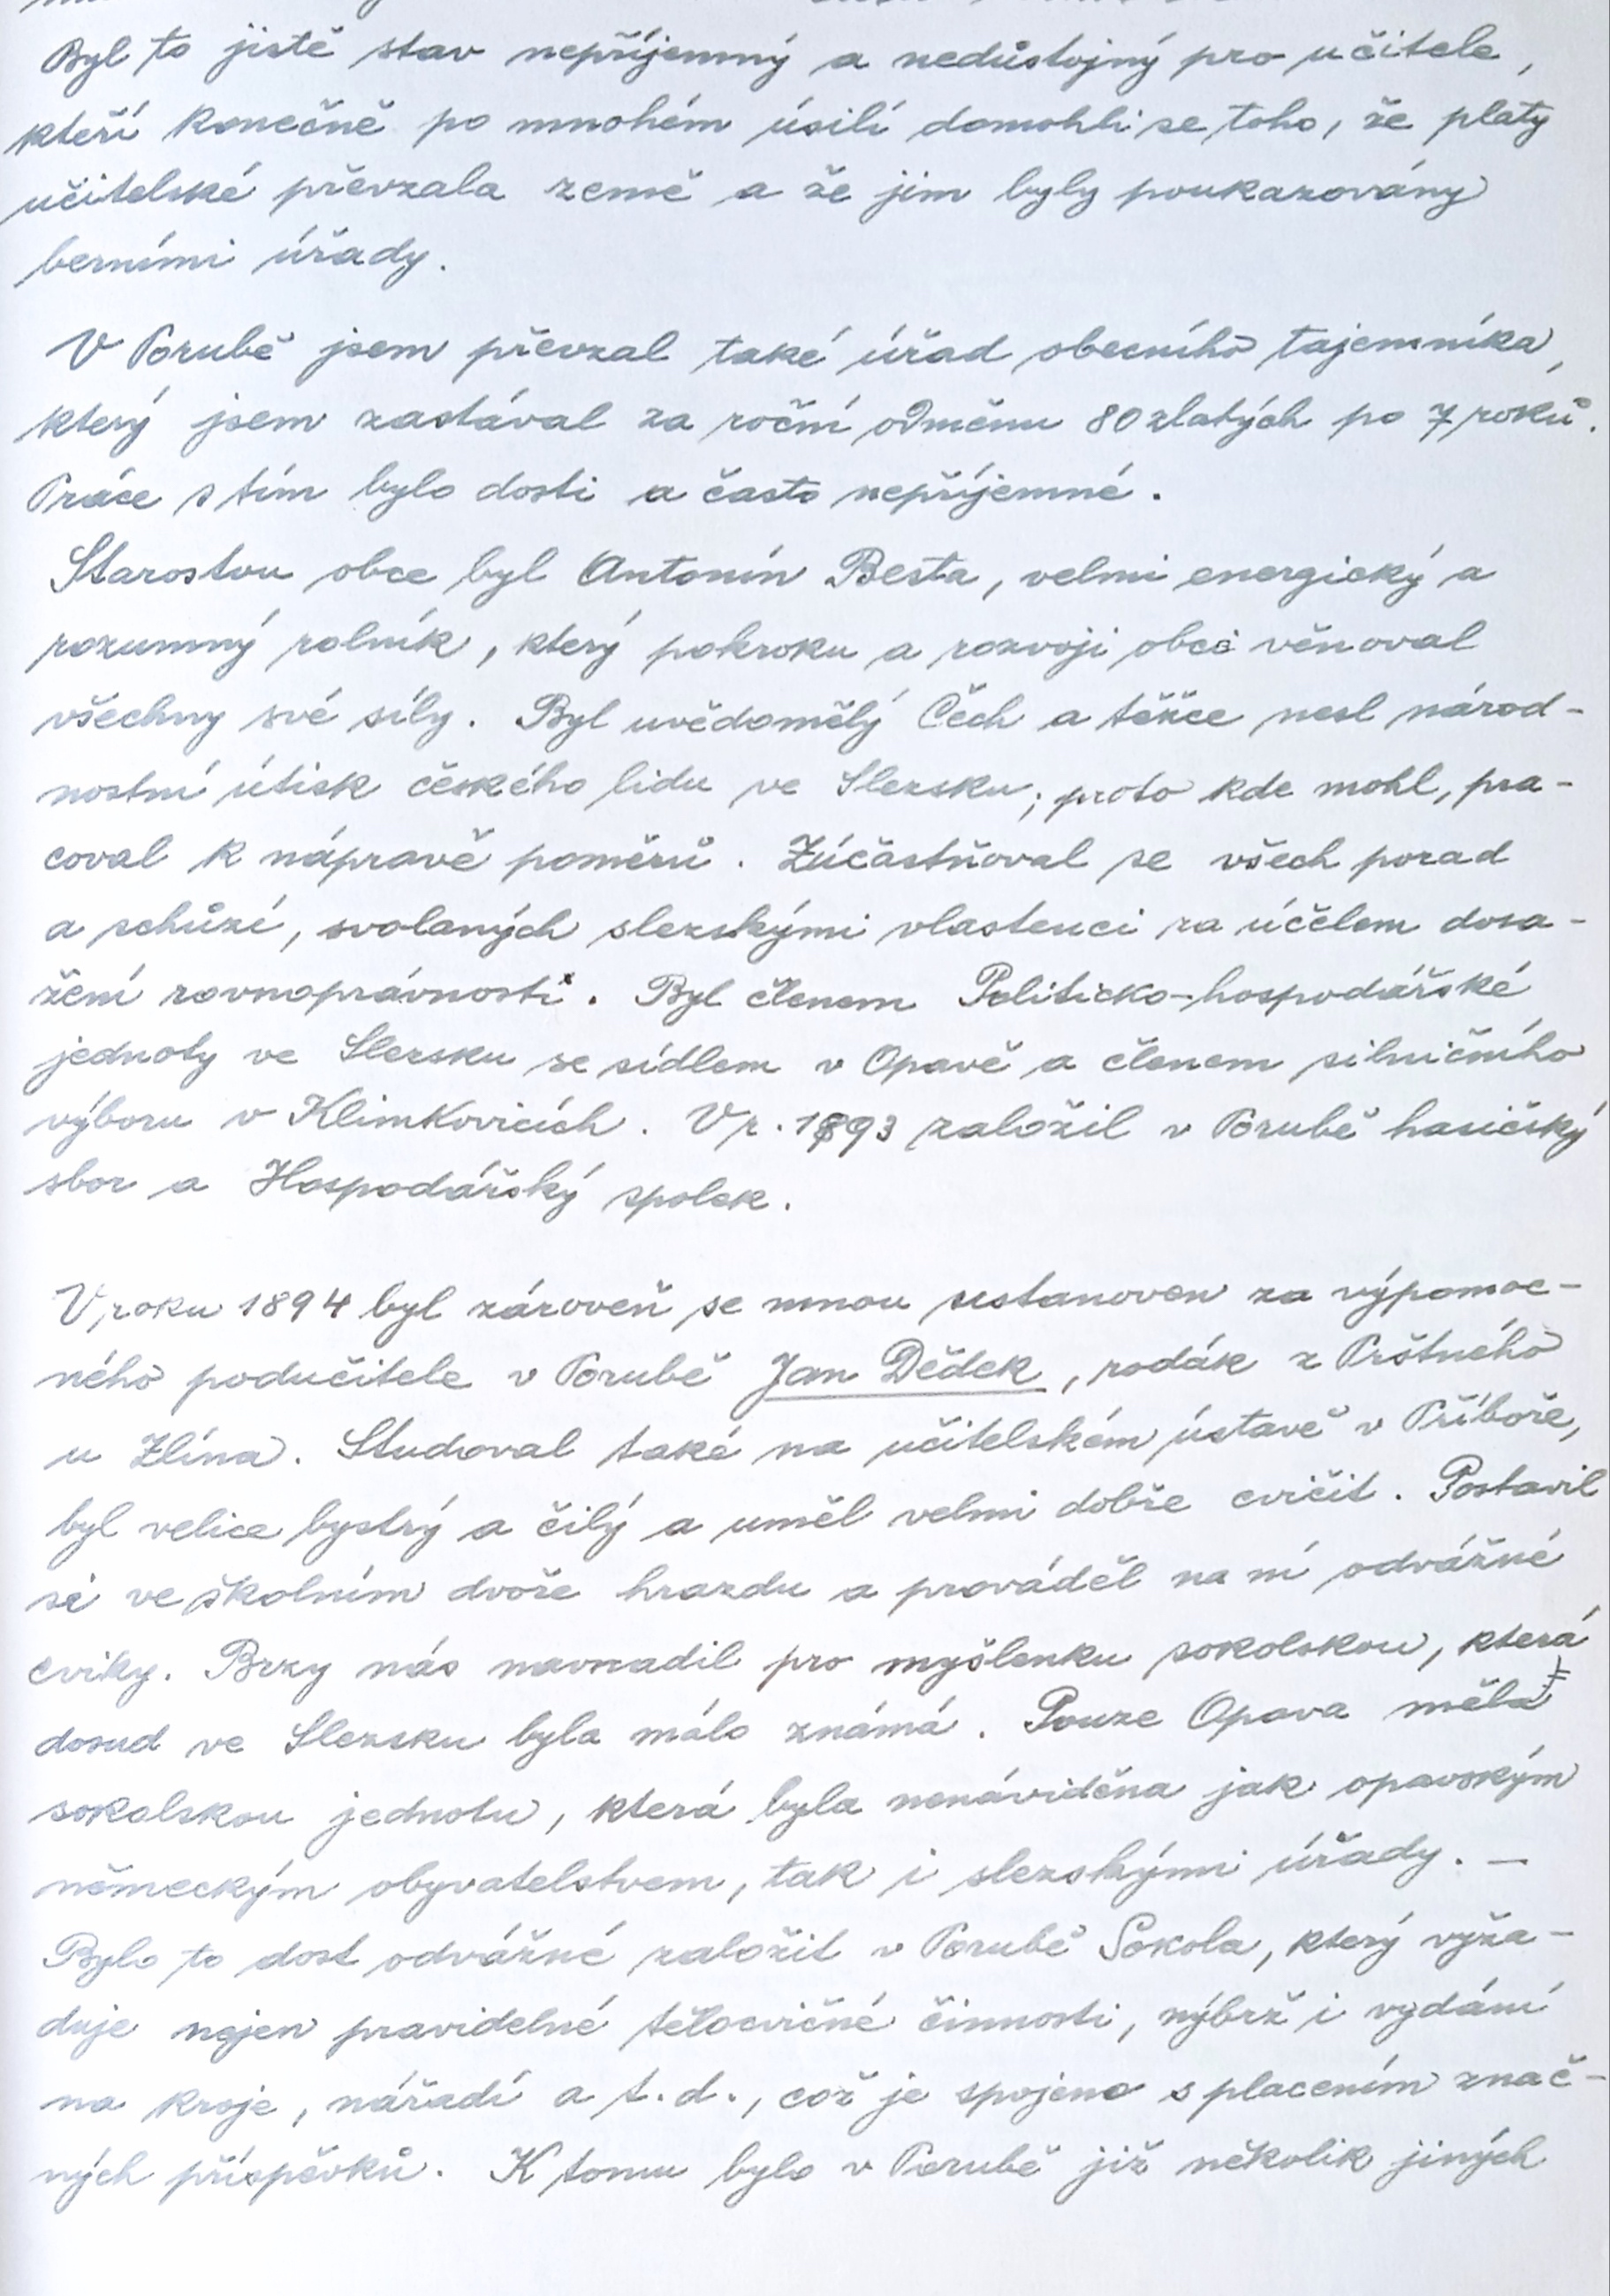 Byl to jistě stav nepříjemný a nedůstojný pro učitele,
kteří konečně po mnohém úsilí domohli se toho, že platy
učitelské převzala země a že jim byly poukazovány
berními úřady.
V Porubě jsem převzal také úřad obecního tajemníka,
který jsem zastával za roční odměnu 80 zlatých po 7 roků.
Práce s tím bylo dosti a často nepříjemné.
Starostou obce byl Antonín Besta, velmi energický a
rozumný rolník, který pokroku a rozvoji obci věnoval
všechny své síly. Byl uvědomělý Čech a těžce nesl národ-
nostní útisk českého lidu ve Slezsku; proto kde mohl, pra-
coval k nápravě poměrů. Zúčastňoval se všech porad
a schůzí, svolaných slezskými vlastenci za účelem dosa-
žení rovnoprávnosti. Byl členem Politicko-hospodářské
jednoty ve Slezsku se sídlem v Opavě a členem silničního
výboru v Klimkovicích. V r. 1893 založil v Porubě hasičský
sbor a Hospodářský spolek.
V roku 1894 byl zároveň se mnou ustanoven za výpomoc-
ného podučitele v Porubě Jan Dědek, rodák z Prštného
u Zlína. Studoval také na učitelském ústavě v Příboře,
byl velice bystrý a čilý a uměl velmi dobře cvičit. Postavil
si ve školním dvoře hrazdu a prováděl na ní odvážné
cviky. Brzy nás navnadil pro myšlenku sokolskou, která
dosud ve Slezsku byla málo známá. Pouze Opava měla
sokolskou jednotu, která byla nenáviděna jak opavským
německým obyvatelstvem, tak i slezskými úřady. —
Bylo to dost odvážné založit v Porubě Sokola, který vyža-
duje nejen pravidelné tělocvičné činnosti, nýbrž i vydání
na kroje, nářadí a t. d., což je spojeno s placením znač-
ných příspěvků. K tomu bylo v Porubě již několik jiných